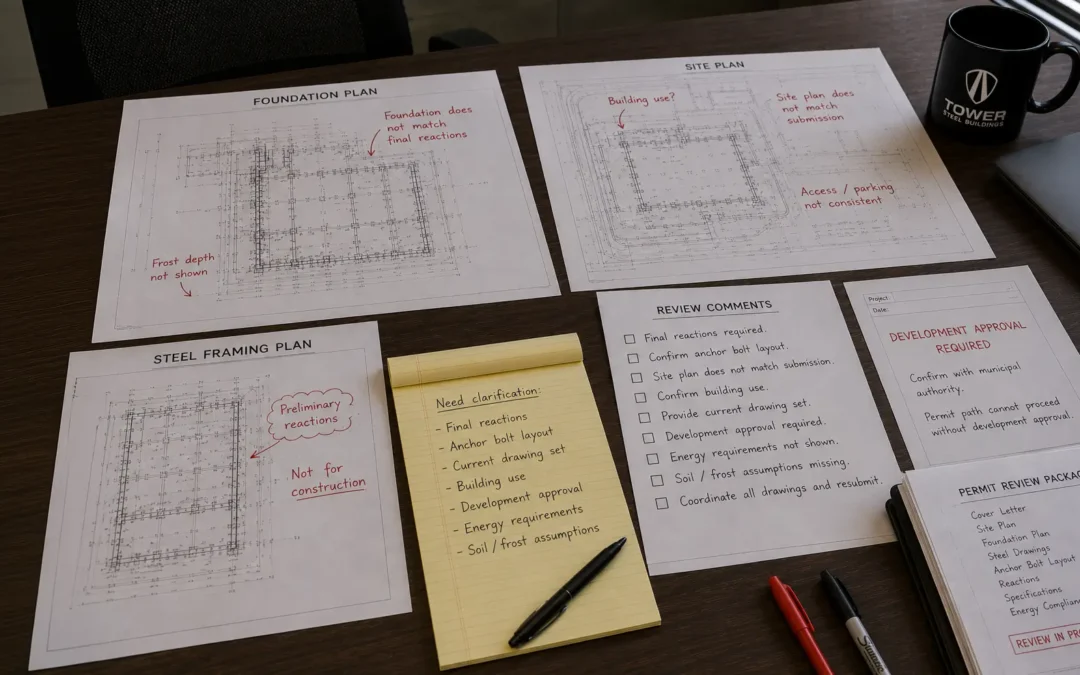 FOUNDATION PLAN
Foundation does
not match
final reactions
Frost depth
not shown
SITE PLAN
Building use?
Site plan does
not match
submission
Access / parking
not consistent
TOWER
STEEL BUILDINGS
STEEL FRAMING PLAN
Preliminary
reactions
Not for
construction
Need clarification:
- Final reactions
- Anchor bolt layout
- Current drawing set
- Building use
- Development approval
- Energy requirements
- Soil / frost assumptions
REVIEW COMMENTS
Final reactions required.
Confirm anchor bolt layout.
Site plan does not match submission.
Confirm building use.
Provide current drawing set.
Development approval required.
Energy requirements not shown.
Soil / frost assumptions missing.
Coordinate all drawings and resubmit.
Project:
Date:
DEVELOPMENT APPROVAL
REQUIRED
Confirm with municipal
authority.
Permit path cannot proceed
without development approval.
PERMIT REVIEW PACKAG
Cover Letter
Site Plan
Foundation Plan
Steel Drawings
Anchor Bolt Layout
Reactions
Specifications
Energy Complian
REVIEW IN PR
Sharpie